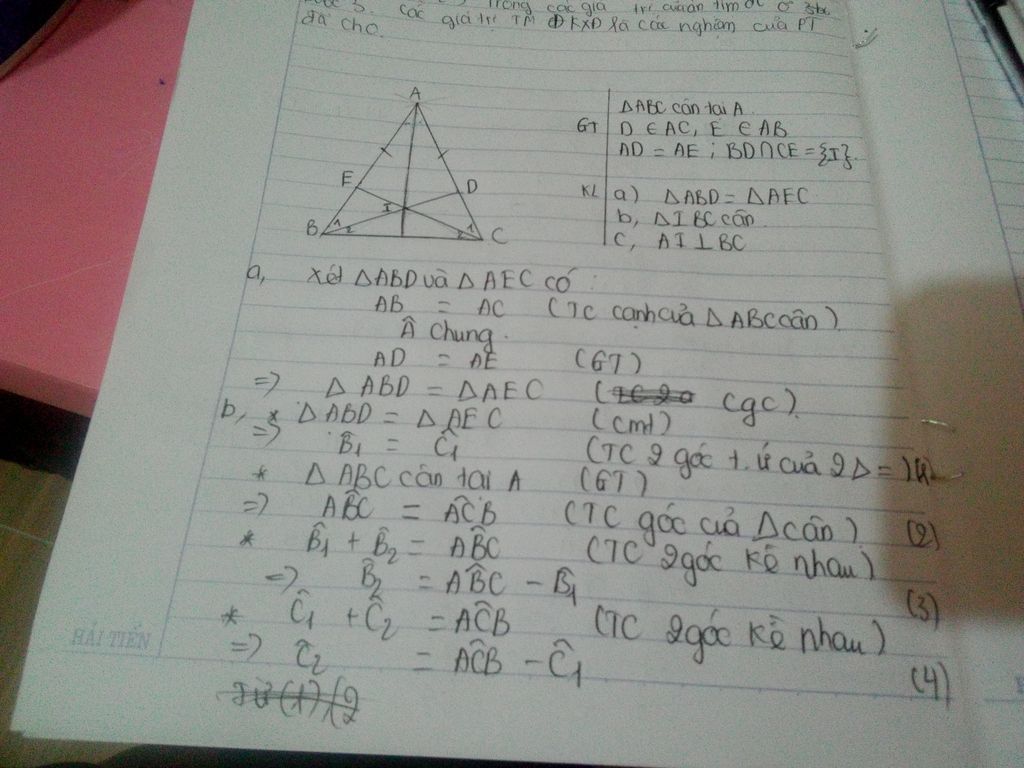 Trong các giá trị của ẩn tìm đc ở
đã cho. các giá trị TM ĐKXĐ là các nghiệm của PT
A
E
D
I
B 1 2
2 1 C
GT
ΔABC cân tại A
D ∈ AC, E ∈ AB
AD = AE ; BD∩CE = {I}.
KL a) ΔABD = ΔAEC
b, ΔIBC cân
c, AI⊥BC
a, Xét ΔABD và ΔAEC có :
AB = AC (TC cạnh của ΔABC cân)
Â chung.
AD = AE (GT)
=> ΔABD = ΔAEC (cgc).
b, * ΔABD = ΔAEC (cmt)
=> B̂1 = Ĉ1 (TC 2 góc t.ứ của 2Δ=)(1)
* ΔABC cân tại A (GT)
=> AB̂C = AĈB (TC góc của Δcân) (2)
* B̂1 + B̂2 = AB̂C (TC 2góc kề nhau)
=> B̂2 = AB̂C - B̂1 (3)
* Ĉ1 + Ĉ2 = AĈB (TC 2góc kề nhau)
=> Ĉ2 = AĈB - Ĉ1 (4)
Từ (1) (2
HẢI TIẾN